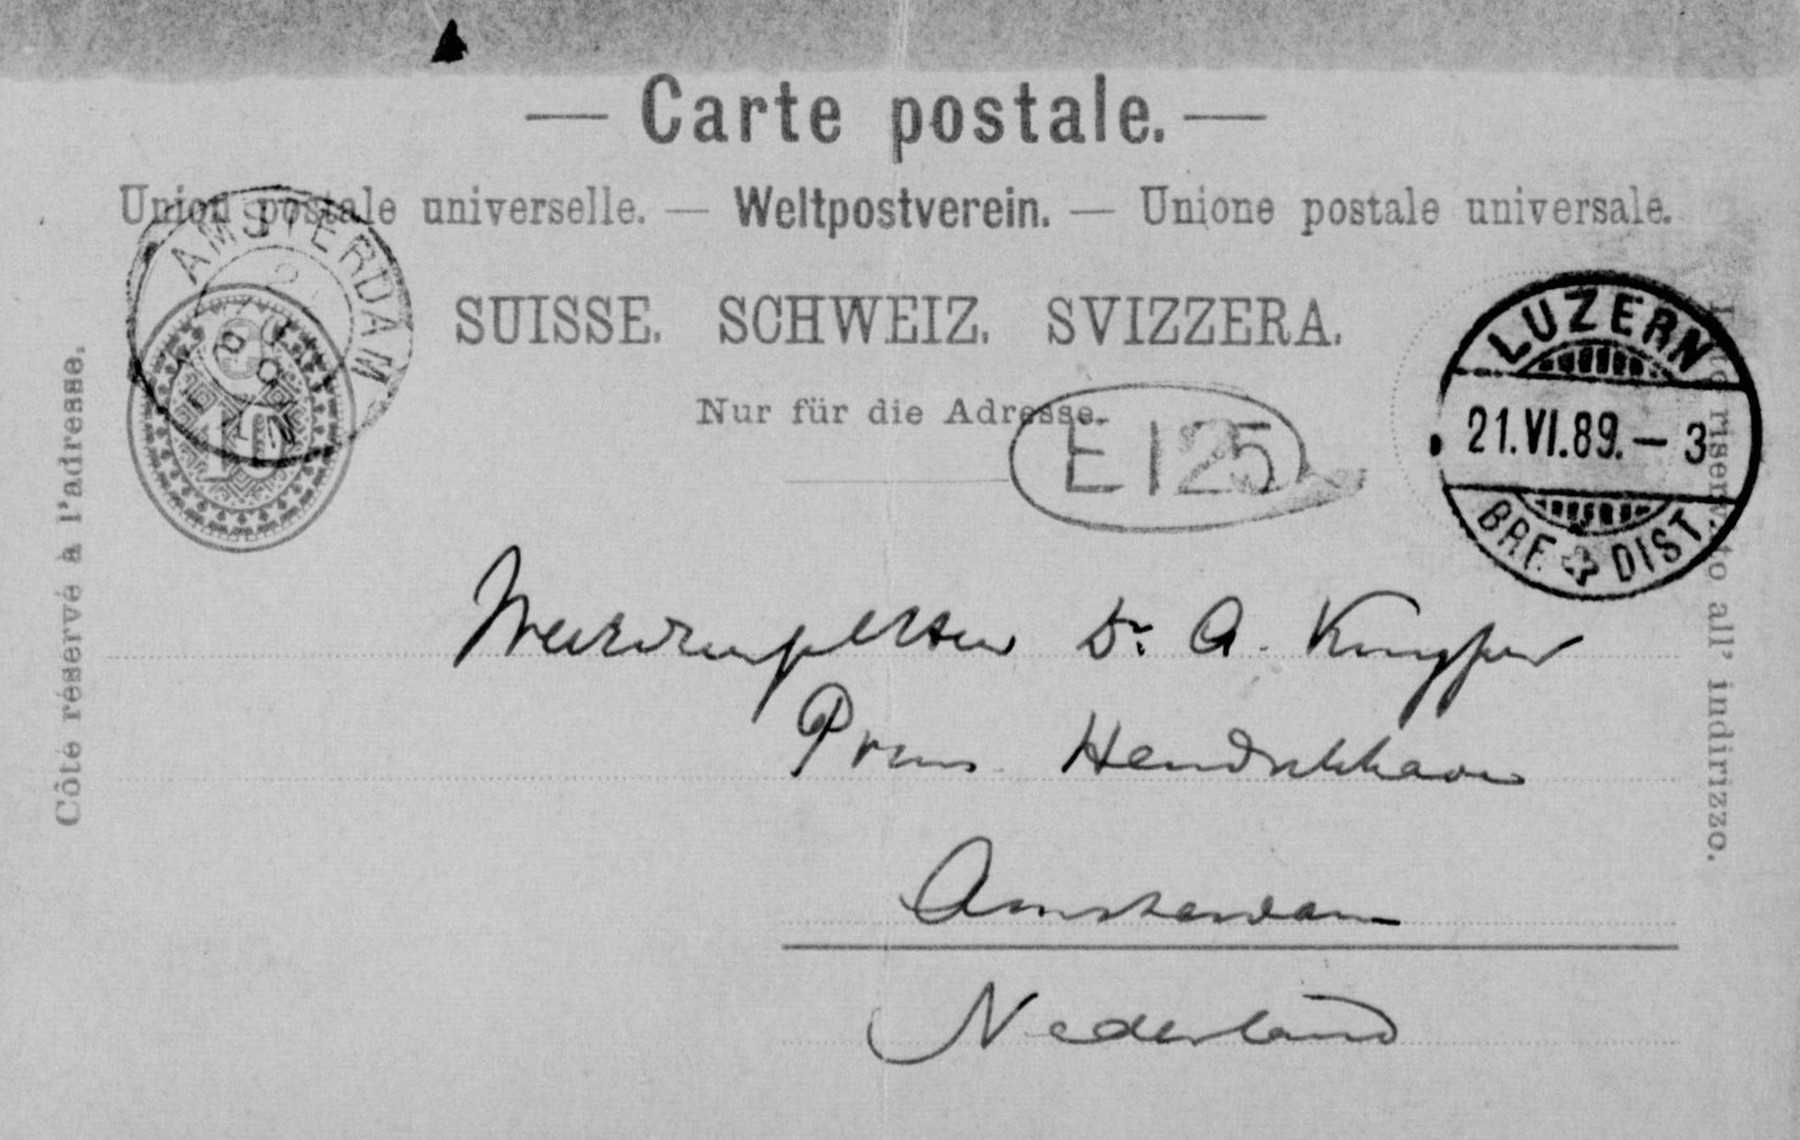 — Carte postale. —
Union postale universelle. — Weltpostverein. — Unione postale universale.
AMSTERDAM
SUISSE. SCHWEIZ. SVIZZERA.
10
Nur für die Adresse.
E 125
LUZERN
21.VI.89.—3
BRF. DIST.
Côté réservé à l'adresse.
all' indirizzo.
Dr. A. Kuyper
Prins Hendrikkade
Amsterdam
Nederland